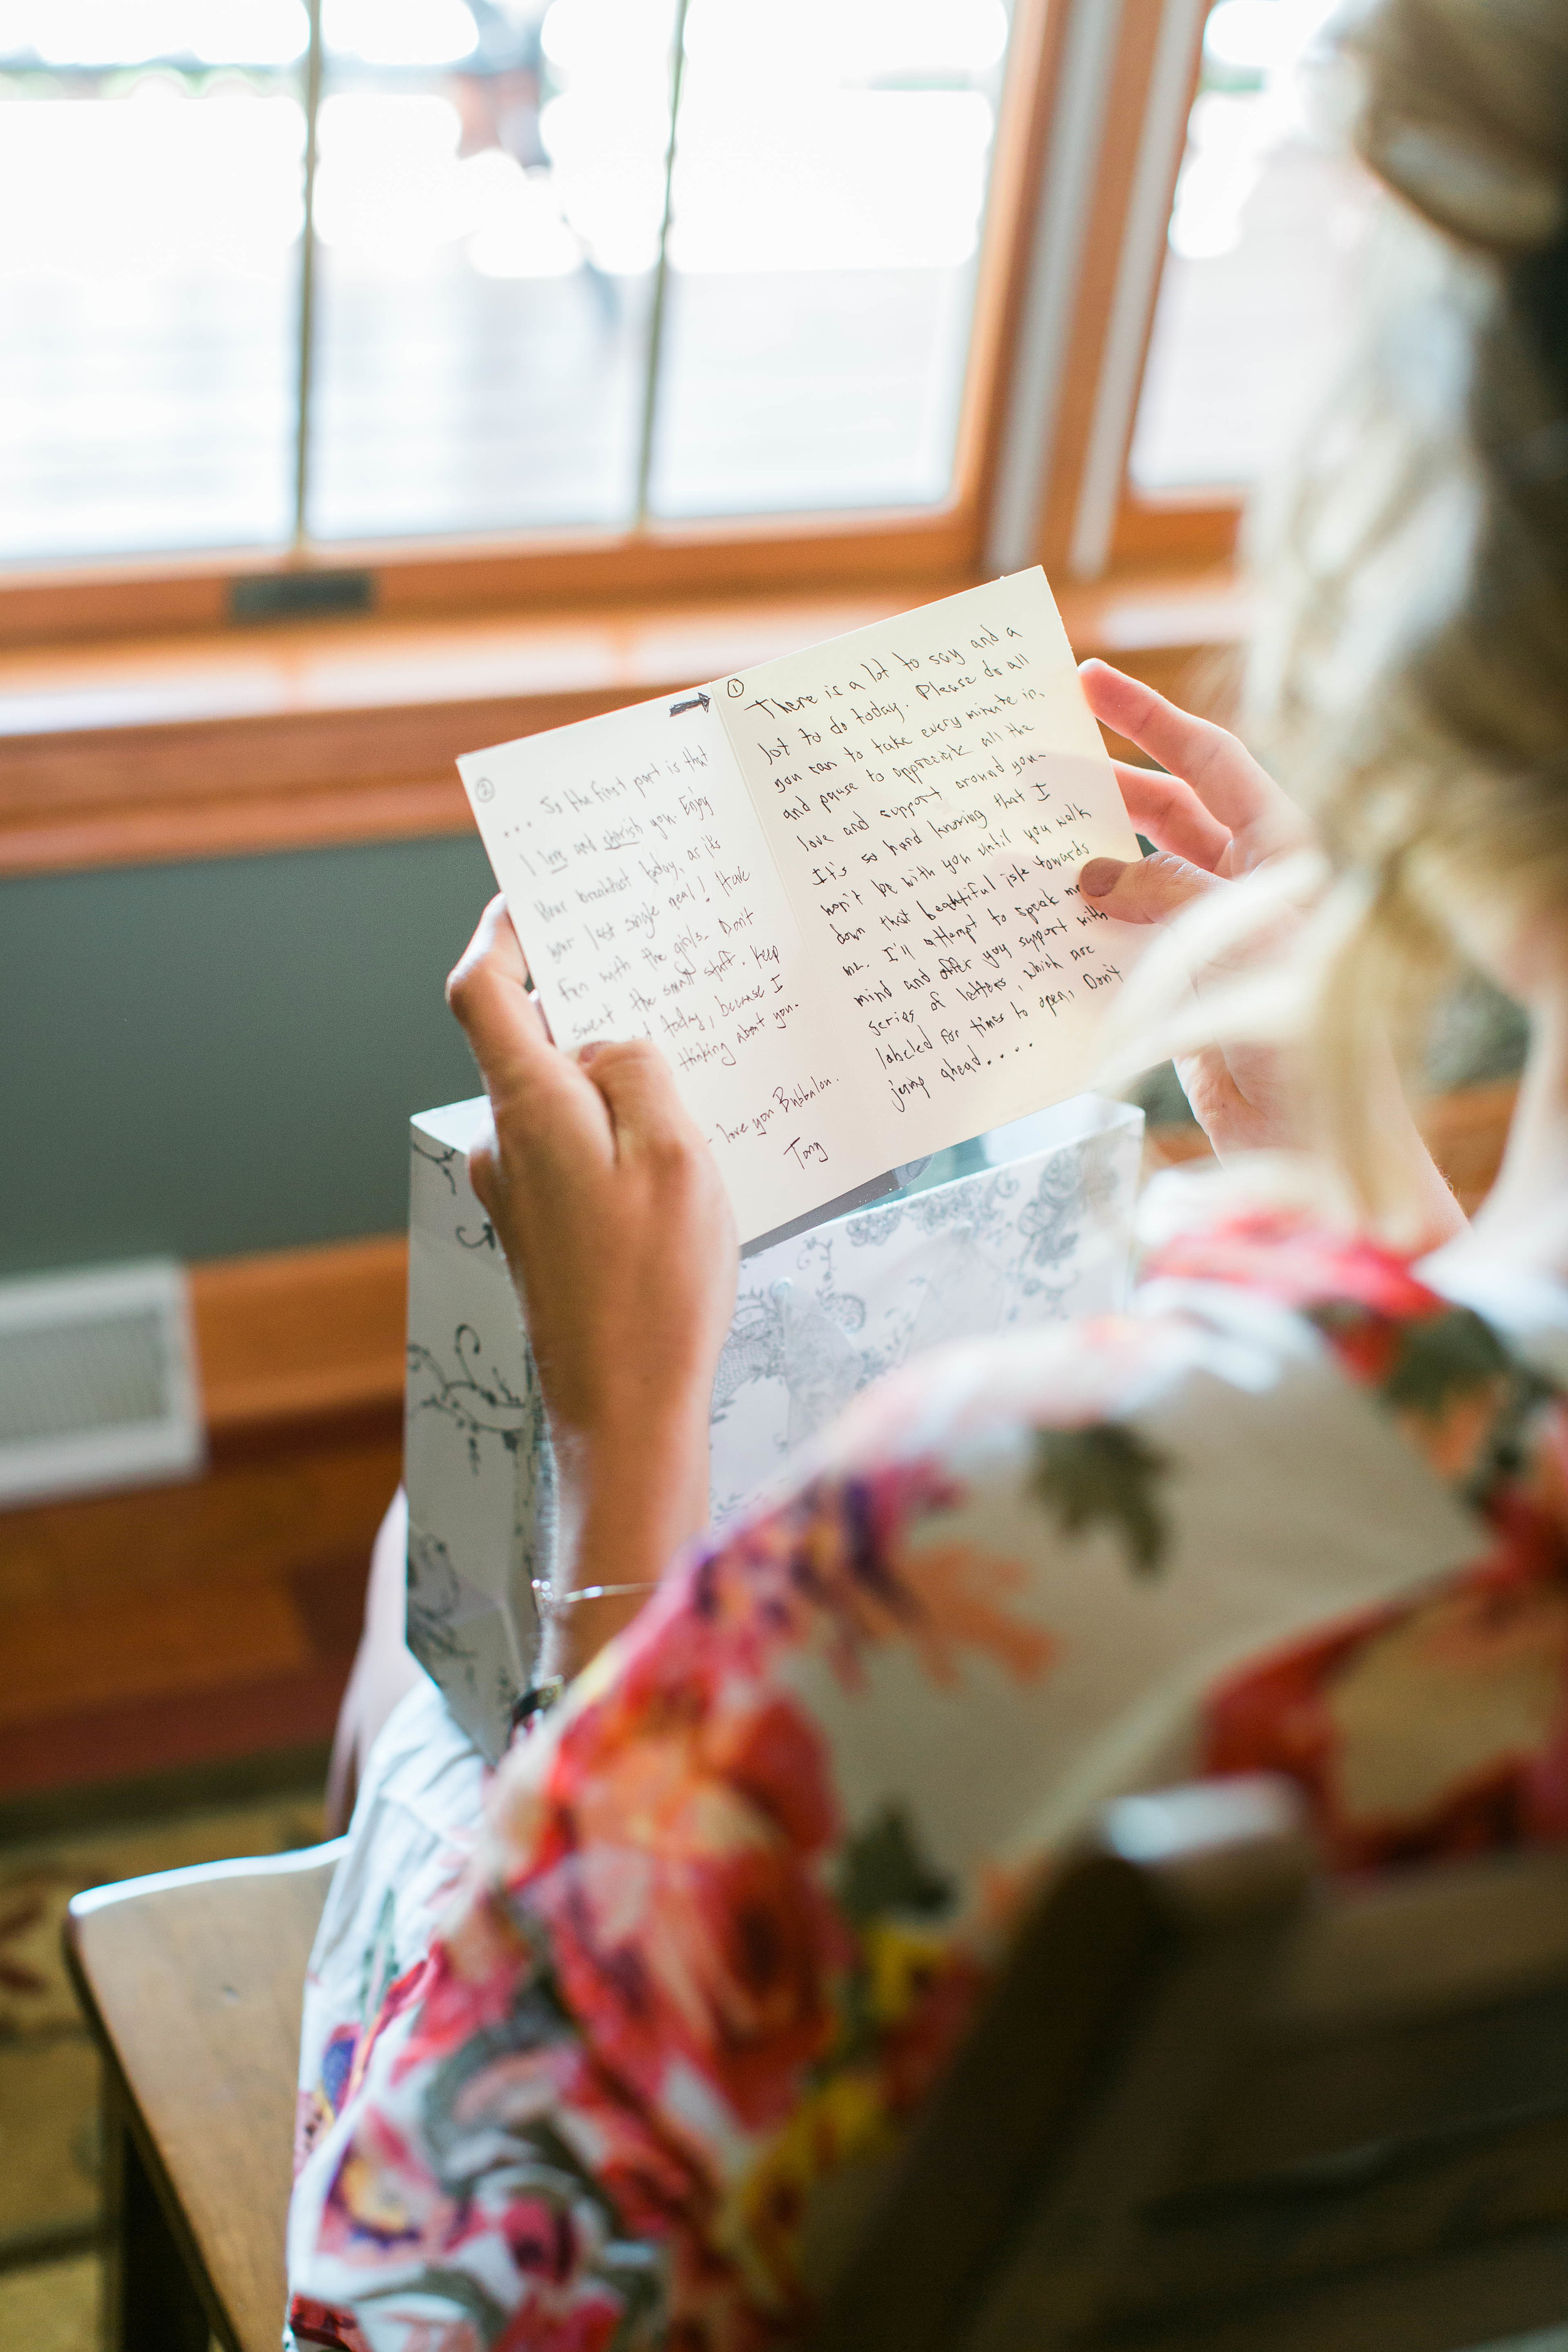 ①
There is a lot to say and a
lot to do today. Please do all
you can to take every minute in,
and pause to appreciate all the
love and support around you-
It's so hard knowing that I
won't be with you until you walk
down that beautiful isle towards
me. I'll attempt to speak my
mind and offer you support with
series of letters, which are
labeled for times to open, Don't
jump ahead....
②
... So the first part is that
I love and cherish you. Enjoy
your breakfast today, as it's
your last single meal! Have
fun with the girls. Don't
sweat the small stuff. Keep
today, because I
thinking about you.
love you Bubbalou.
Tony